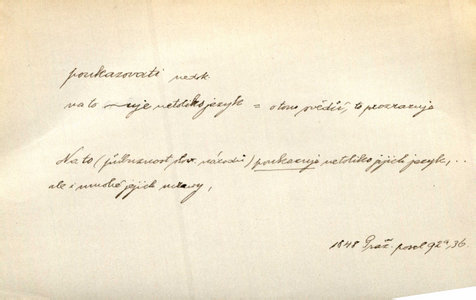 poukazovati nedok
na to —uje netoliko jazyk = o tom svědčí, to prozrazuje
Na to (příbuznost slov. národů) poukazuje netoliko jejich jazyk, ..
ale i mnohé jejich mravy,
1848 Praž. posel 92a, 36.